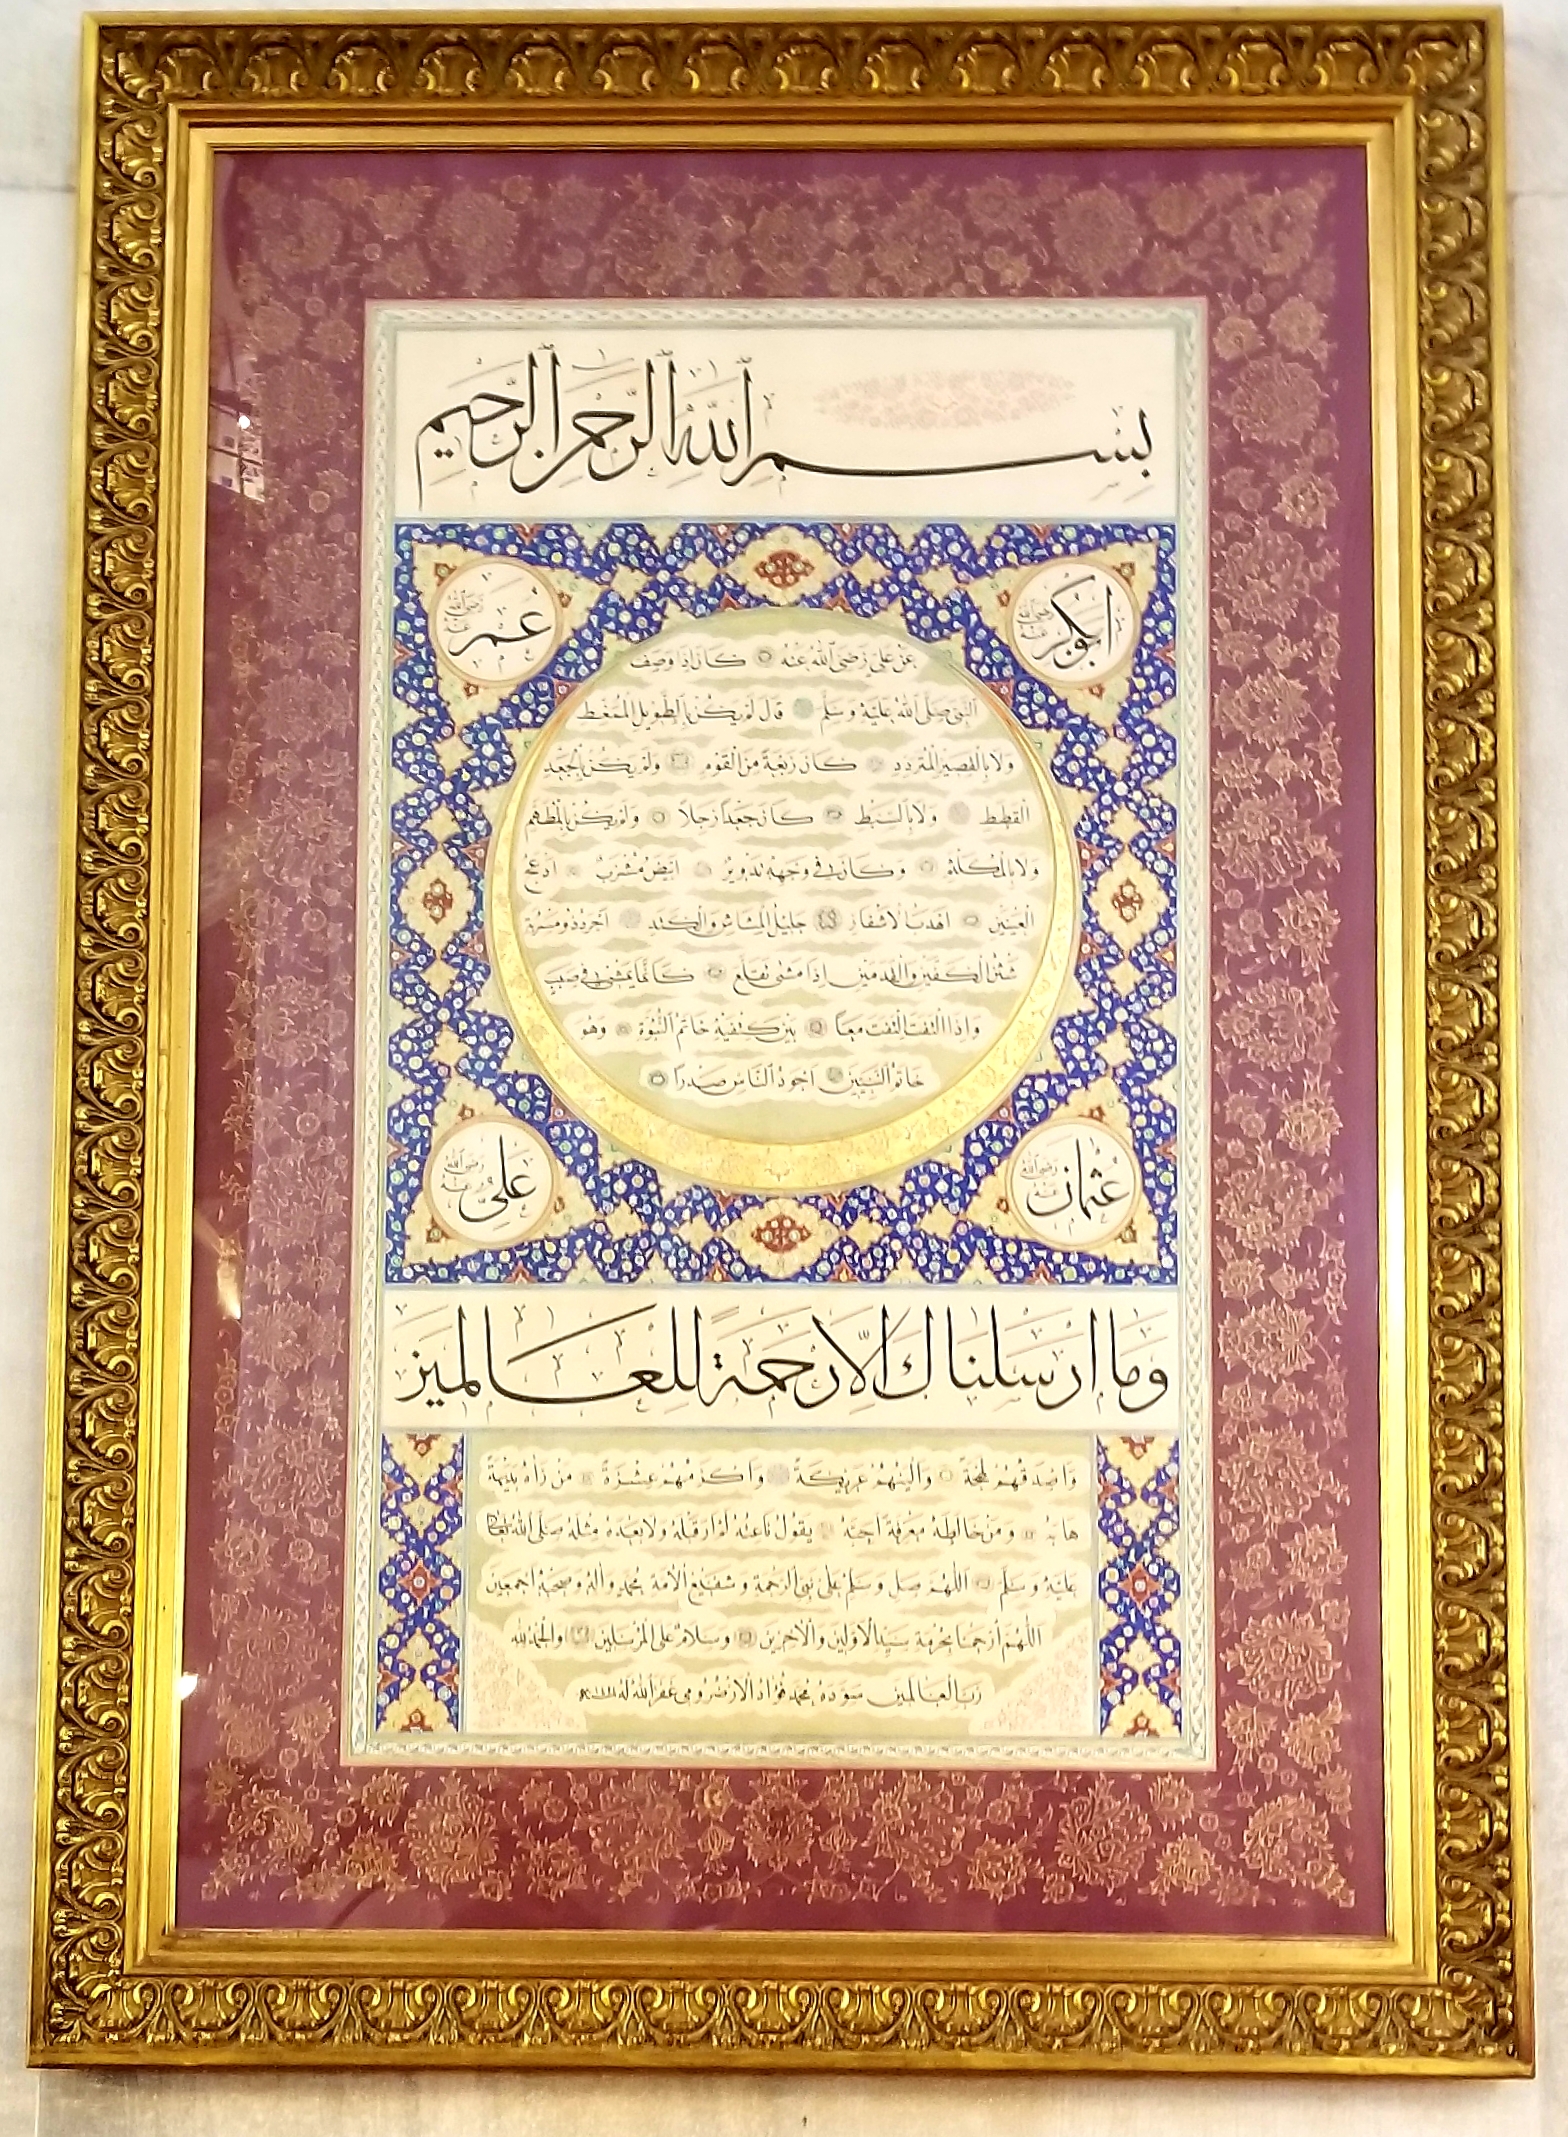 بِسْمِ ٱللّٰهِ ٱلرَّحْمٰنِ ٱلرَّحِيمِ
ابوبكر رضى الله عنه
عُمَر رضى الله عنه
عَنْ عَلِيٍّ رَضِيَ ٱللّٰهُ عَنْهُ كَانَ اِذَا وَصَفَ
ٱلنَّبِيَّ صَلَّى ٱللّٰهُ عَلَيْهِ وَسَلَّمَ قَالَ لَمْ يَكُنْ بِالطَّوِيلِ الْمُمَّغِطِ
وَلَا بِالْقَصِيرِ الْمُتَرَدِّدِ كَانَ رَبْعَةً مِنَ الْقَوْمِ وَلَمْ يَكُنْ بِالْجَعْدِ
الْقَطَطِ وَلَا بِالسَّبِطِ كَانَ جَعْدًا رَجِلًا وَلَمْ يَكُنْ بِالْمُطَهَّمِ
وَلَا بِالْمُكَلْثَمِ وَكَانَ فِي وَجْهِهِ تَدْوِيرٌ اَبْيَضُ مُشْرَبٌ اَدْعَجُ
الْعَيْنَيْنِ اَهْدَبُ الْاَشْفَارِ جَلِيلُ الْمُشَاشِ وَالْكَتَدِ اَجْرَدُ ذُو مَسْرُبَةٍ
شَثْنُ الْكَفَّيْنِ وَالْقَدَمَيْنِ اِذَا مَشٰى تَقَلَّعَ كَاَنَّمَا يَمْشِي فِي صَبَبٍ
وَاِذَا الْتَفَتَ الْتَفَتَ مَعًا بَيْنَ كَتِفَيْهِ خَاتَمُ النُّبُوَّةِ وَهُوَ
خَاتَمُ النَّبِيِّينَ اَجْوَدُ النَّاسِ صَدْرًا
عُثْمَان رضى الله عنه
عَلِي رضى الله عنه
وَمَا اَرْسَلْنَاكَ اِلَّا رَحْمَةً لِلْعَالَمِينَ
وَاَصْدَقُهُمْ لَهْجَةً وَاَلْيَنُهُمْ عَرِيكَةً وَاَكْرَمُهُمْ عِشْرَةً مَنْ رَاٰهُ بَدِيهَةً
هَابَهُ وَمَنْ خَالَطَهُ مَعْرِفَةً اَحَبَّهُ يَقُولُ نَاعِتُهُ لَمْ اَرَ قَبْلَهُ وَلَا بَعْدَهُ مِثْلَهُ صَلَّى اللّٰهُ تَعَالٰى
عَلَيْهِ وَسَلَّمَ اَللّٰهُمَّ صَلِّ وَسَلِّمْ عَلٰى نَبِيِّ الرَّحْمَةِ وَشَفِيعِ الْاُمَّةِ مُحَمَّدٍ وَاٰلِهِ وَصَحْبِهِ اَجْمَعِينَ
اَللّٰهُمَّ ارْحَمْنَا بِحُرْمَةِ سَيِّدِ الْاَوَّلِينَ وَالْاٰخِرِينَ وَسَلَامٌ عَلَى الْمُرْسَلِينَ وَالْحَمْدُ لِلّٰهِ
رَبِّ الْعَالَمِينَ سَوَّدَهُ مُحَمَّد فُؤَاد الْاَرْضَرُومِي غَفَرَ اللّٰهُ لَهُ